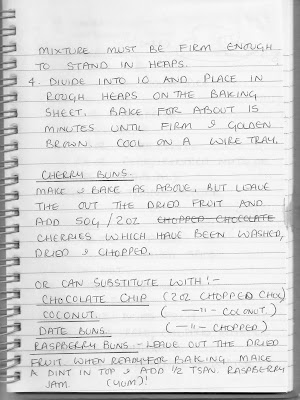 MIXTURE MUST BE FIRM ENOUGH
TO STAND IN HEAPS.
4. DIVIDE INTO 10 AND PLACE IN
ROUGH HEAPS ON THE BAKING
SHEET. BAKE FOR ABOUT 15
MINUTES UNTIL FIRM & GOLDEN
BROWN. COOL ON A WIRE TRAY.
CHERRY BUNS.
MAKE & BAKE AS ABOVE, BUT LEAVE
THE OUT THE DRIED FRUIT AND
ADD 50G/2OZ CHOPPED CHOCOLATE
CHERRIES WHICH HAVE BEEN WASHED,
DRIED & CHOPPED.
OR CAN SUBSTITUTE WITH:-
CHOCOLATE CHIP (2OZ CHOPPED CHOC)
COCONUT. ( —"— COCONUT.)
DATE BUNS ( —"— CHOPPED)
RASPBERRY BUNS:- LEAVE OUT THE DRIED
FRUIT. WHEN READY FOR BAKING MAKE
A DINT IN TOP & ADD 1/2 TSPN. RASPBERRY
JAM. (YUM)!